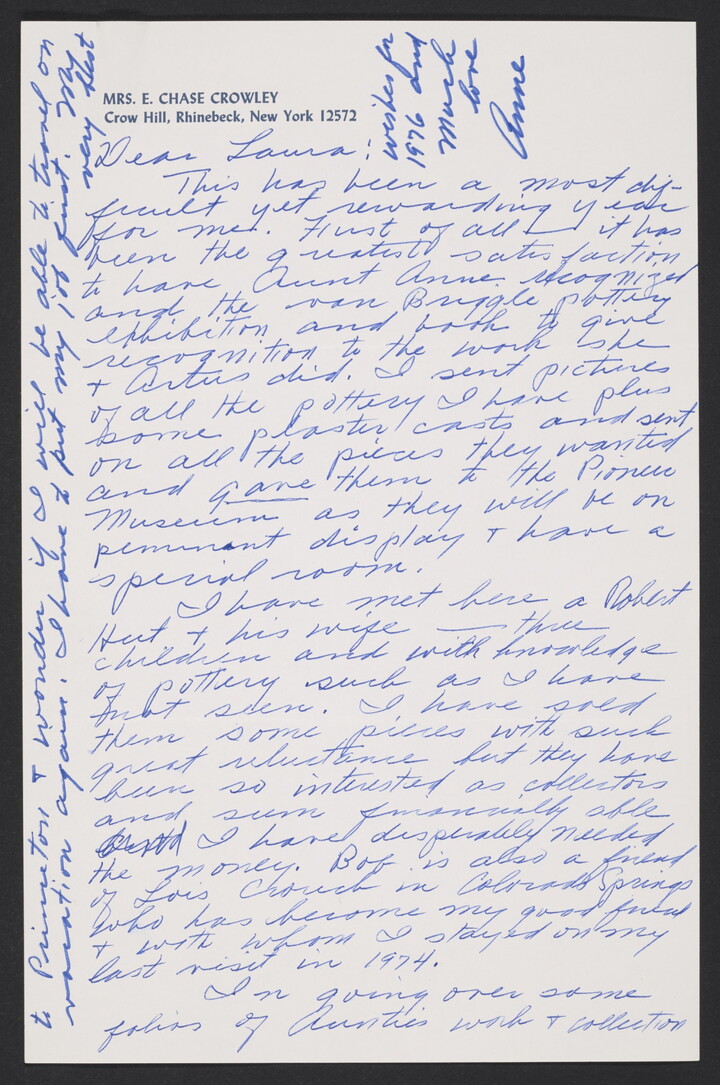 MRS. E. CHASE CROWLEY
Crow Hill, Rhinebeck, New York 12572
Dear Laura:
This has been a most dif-
ficult yet rewarding year
for me. First of all — it has
been the greatest satisfaction
to have Aunt Anne recognized
and the van Briggle pottery
exhibition and book to give
recognition to the work she
+ Artus did. I sent pictures
of all the pottery I have plus
some plaster casts and sent
on all the pieces they wanted
and gave them to the Pioneer
Museum as they will be on
perminant display + have a
special room.
I have met here a Robert
Hut + his wife — three
children and with knowledge
of pottery such as I have
not seen. I have sold
them some pieces with such
great reluctance but they have
been so interested as collectors
and seem financially able
I have desperately needed
the money. Bob is also a friend
of Lois Crouch in Colorado Springs
who has become my good friend
+ with whom I stayed on my
last visit in 1974.
In going over some
folios of Aunties work + collection
to Princeton + wonder if I will be able to travel on
vacation again. I have to put my job first. My
very best
wishes for
1976 and
Much
love
Anne